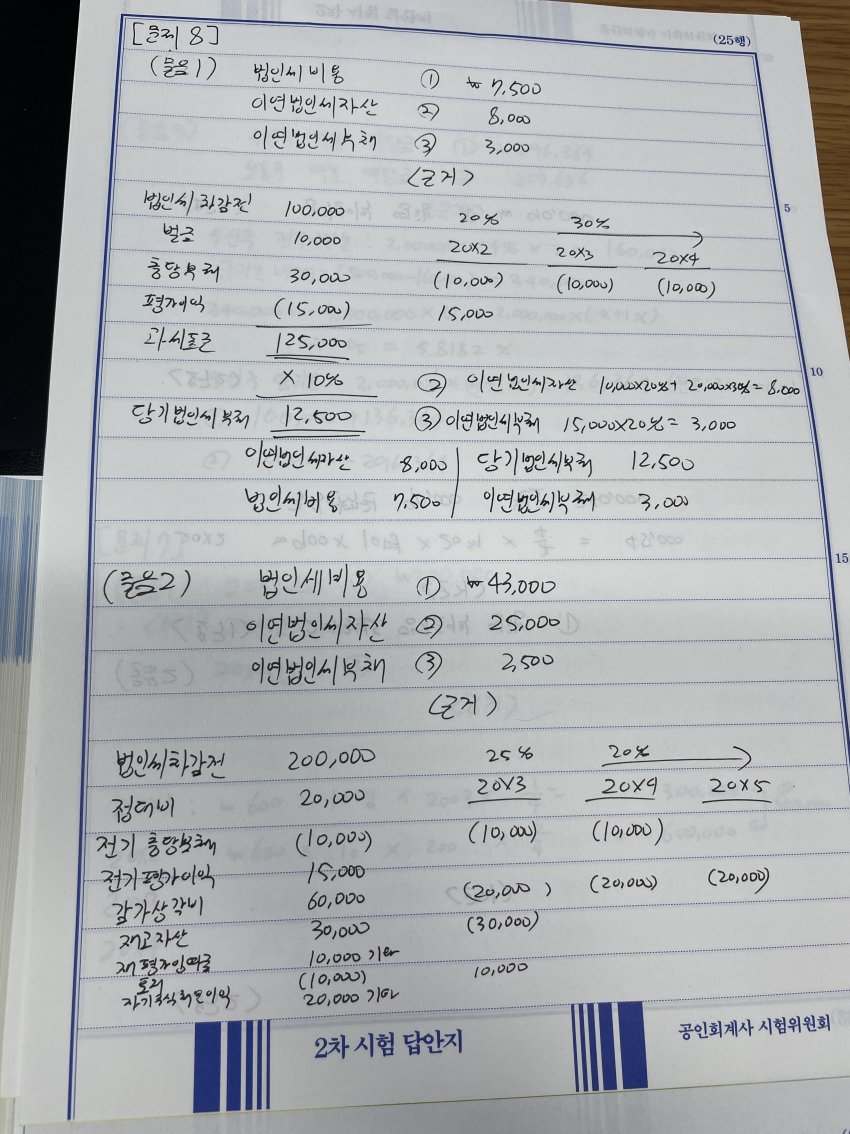 [문제 8] (25행)
(물음1) 법인세비용 ① ₩7,500
이연법인세자산 ② 8,000
이연법인세부채 ③ 3,000
(근거)
5
법인세차감전 100,000 20% 30%
벌금 10,000 20X2 20X3 20X4
충당부채 30,000 (10,000) (10,000) (10,000)
평가이익 (15,000) 15,000
과세소득 125,000
10
X 10% ② 이연법인세자산 10,000X20%+ 20,000X30%= 8,000
당기법인세부채 12,500 ③ 이연법인세부채 15,000X20%= 3,000
이연법인세자산 8,000 | 당기법인세부채 12,500
법인세비용 7,500 | 이연법인세부채 3,000
15
(물음2) 법인세비용 ① ₩43,000
이연법인세자산 ② 25,000
이연법인세부채 ③ 2,500
(근거)
법인세차감전 200,000 25% 20%
접대비 20,000 20X3 20X4 20X5
전기 충당부채 (10,000) (10,000) (10,000)
전기평가이익 15,000
감가상각비 60,000 (20,000) (20,000) (20,000)
재고자산 30,000 (30,000)
재평가잉여금 10,000 기타
토지 (10,000) 10,000
자기주식처분이익 20,000 기타
2차 시험 답안지
공인회계사 시험위원회